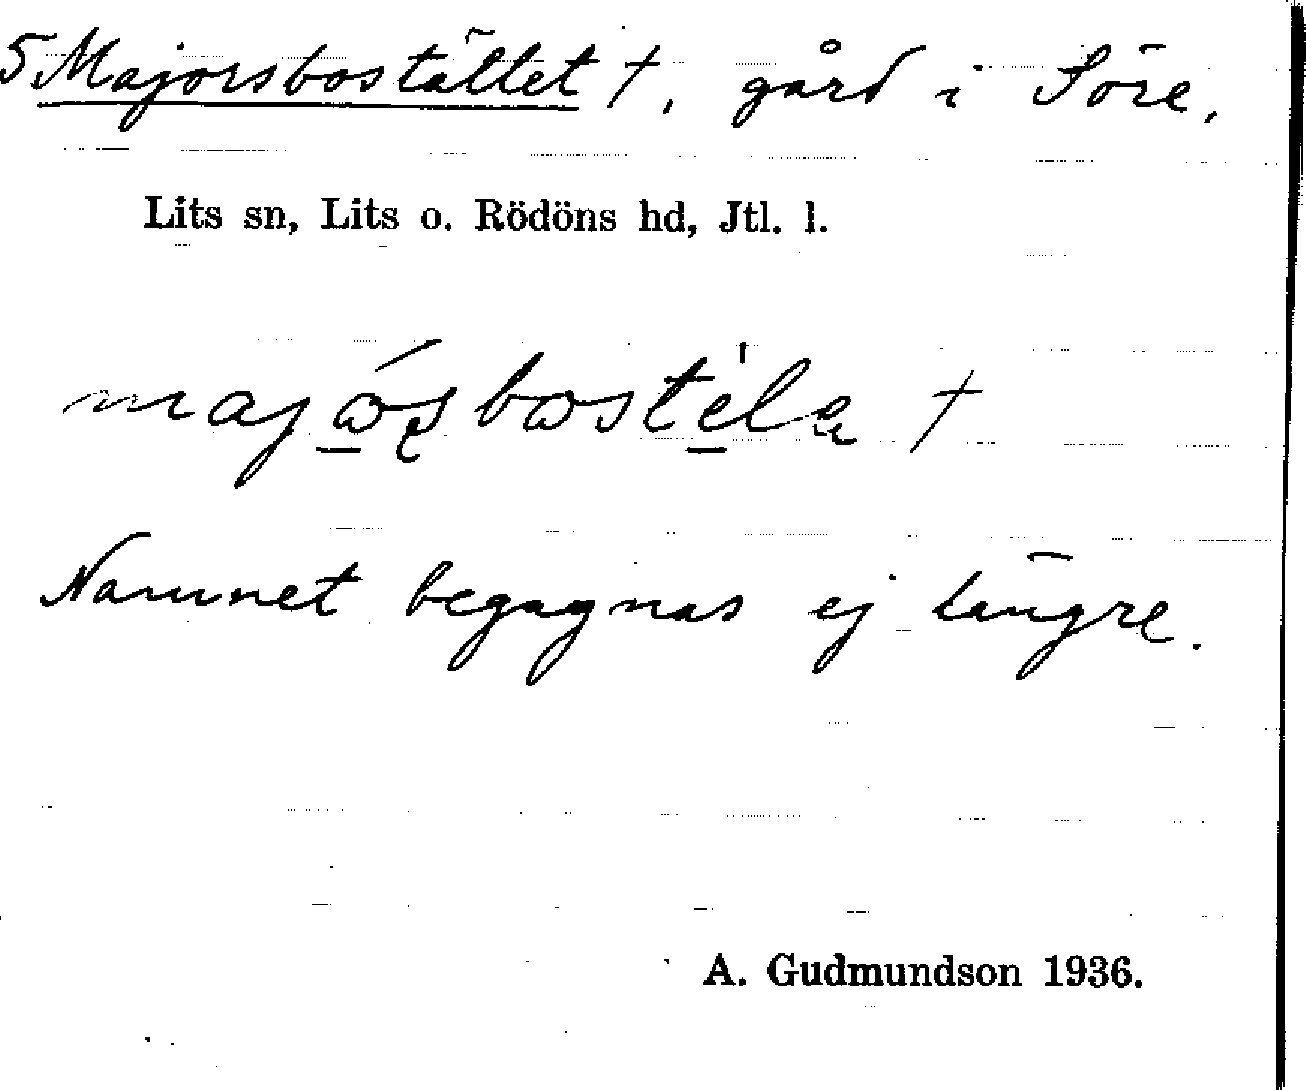 5 Majorsbostället †, gård i Söre.
Lits sn, Lits o. Rödöns hd, Jtl. l.
†
Namnet begagnas ej längre.
A. Gudmundson 1936.